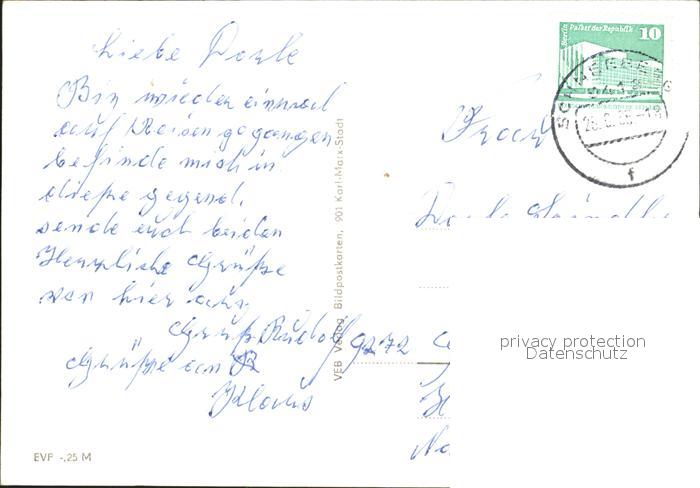 Liebe Dorle
Bin wieder einmal
auf Reisen gegangen
befinde mich in
diese gegend.
sende euch beiden
Herzliche Grüße
von hier aus
Gruß Rudolf
Grüße an
Klaus
VEB Verlag Bildpostkarten, 901 Karl-Marx-Stadt
EVP -,25 M
Berlin Palast der Republik 10
SCHNEEBERG
f
Frau
9272
privacy protection
Datenschutz